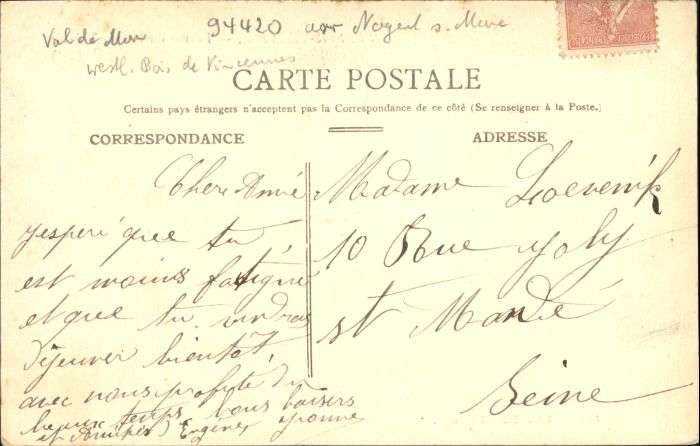 Val de Marne
94420 arr Nogent s. Marne
westl. Bois de Vincennes
CARTE POSTALE
Certains pays étrangers n'acceptent pas la Correspondance de ce côté (Se renseigner à la Poste.)
CORRESPONDANCE
Chere Amie
j'esperé que tu
est moins fatigué
et que tu viendras
déjeuner bientôt
avec nous profité du
beaux temps bons baisers
Eugene Yvonne
ADRESSE
Madame
10 Rue Joly
st Mandé
Seine